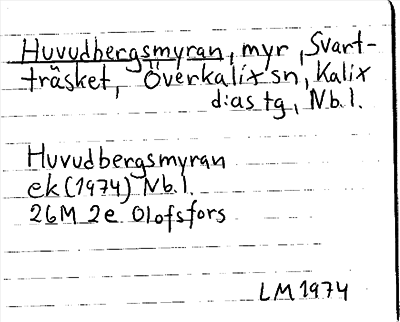 Huvudbergsmyran, myr, Svart-
träsket, Överkalix sn, Kalix
d:as tg, Nb.l.
Huvudbergsmyran
ek (1974) Nb.l.
26M 2e Olofsfors
LM 1974